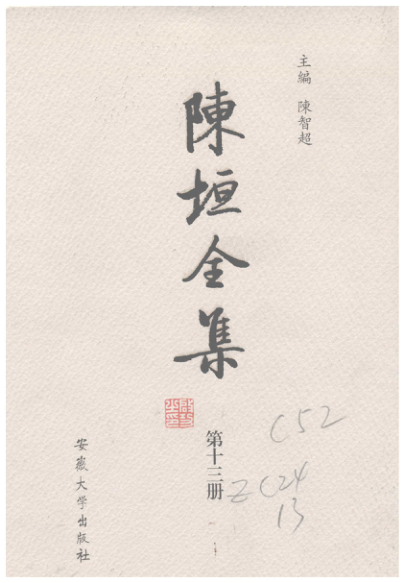 主編 陳智超
陳垣全集
第十三册
安徽大学出版社
C52
Z C24
13